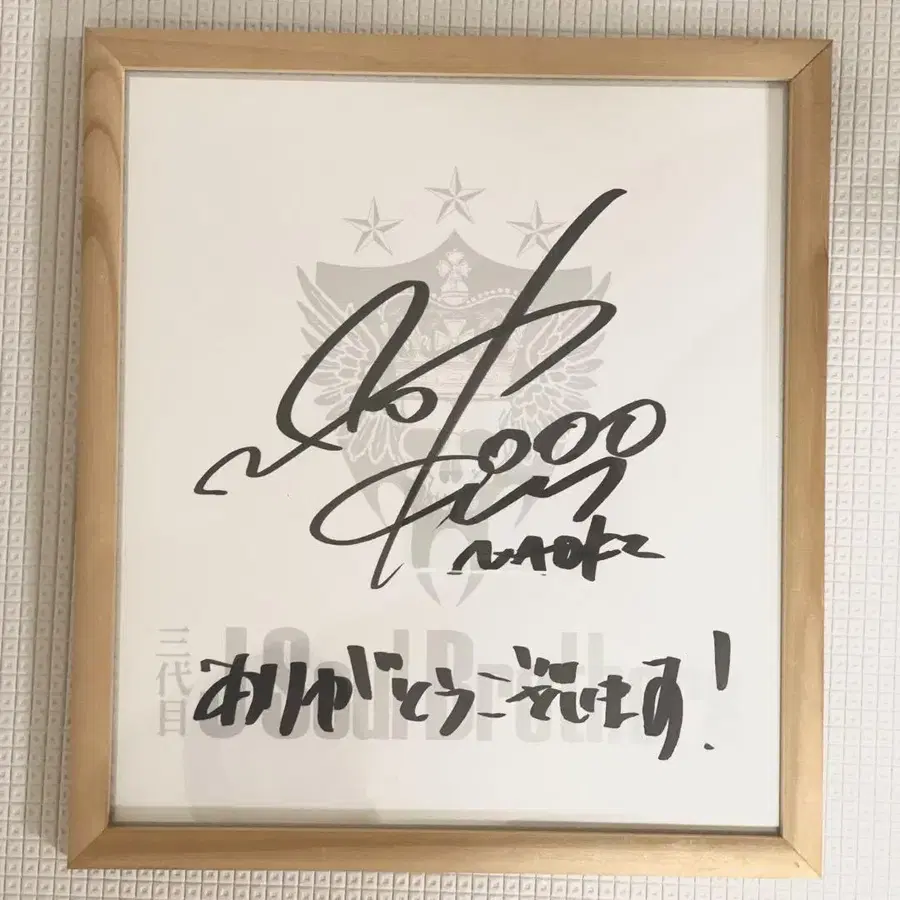 NAOKI
三代目
J Soul Brothers
ありがとうございます!